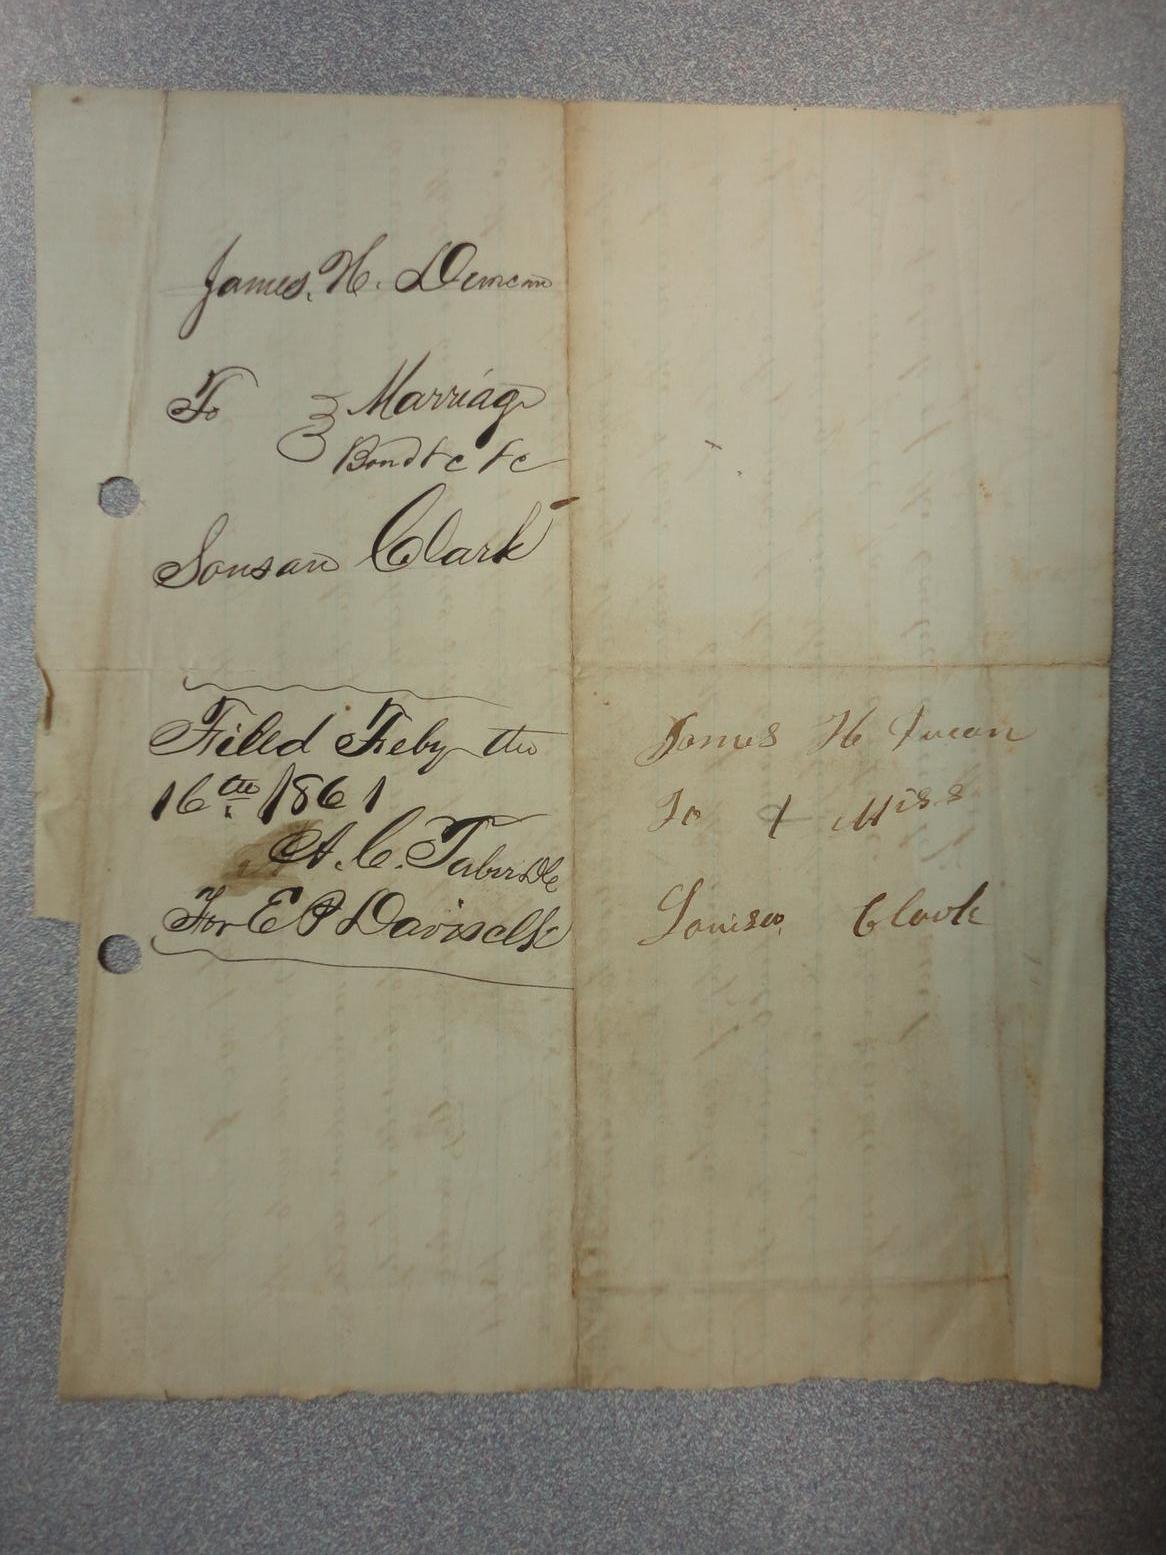 James. H. Duncan
To } Marriag
Bond &c &c
Sousan Clark
Filled Feby the
16th 1861
A. C. Tabir Dc
For E P Davis clk
James H Duean
To & Miss
Louisa Clark